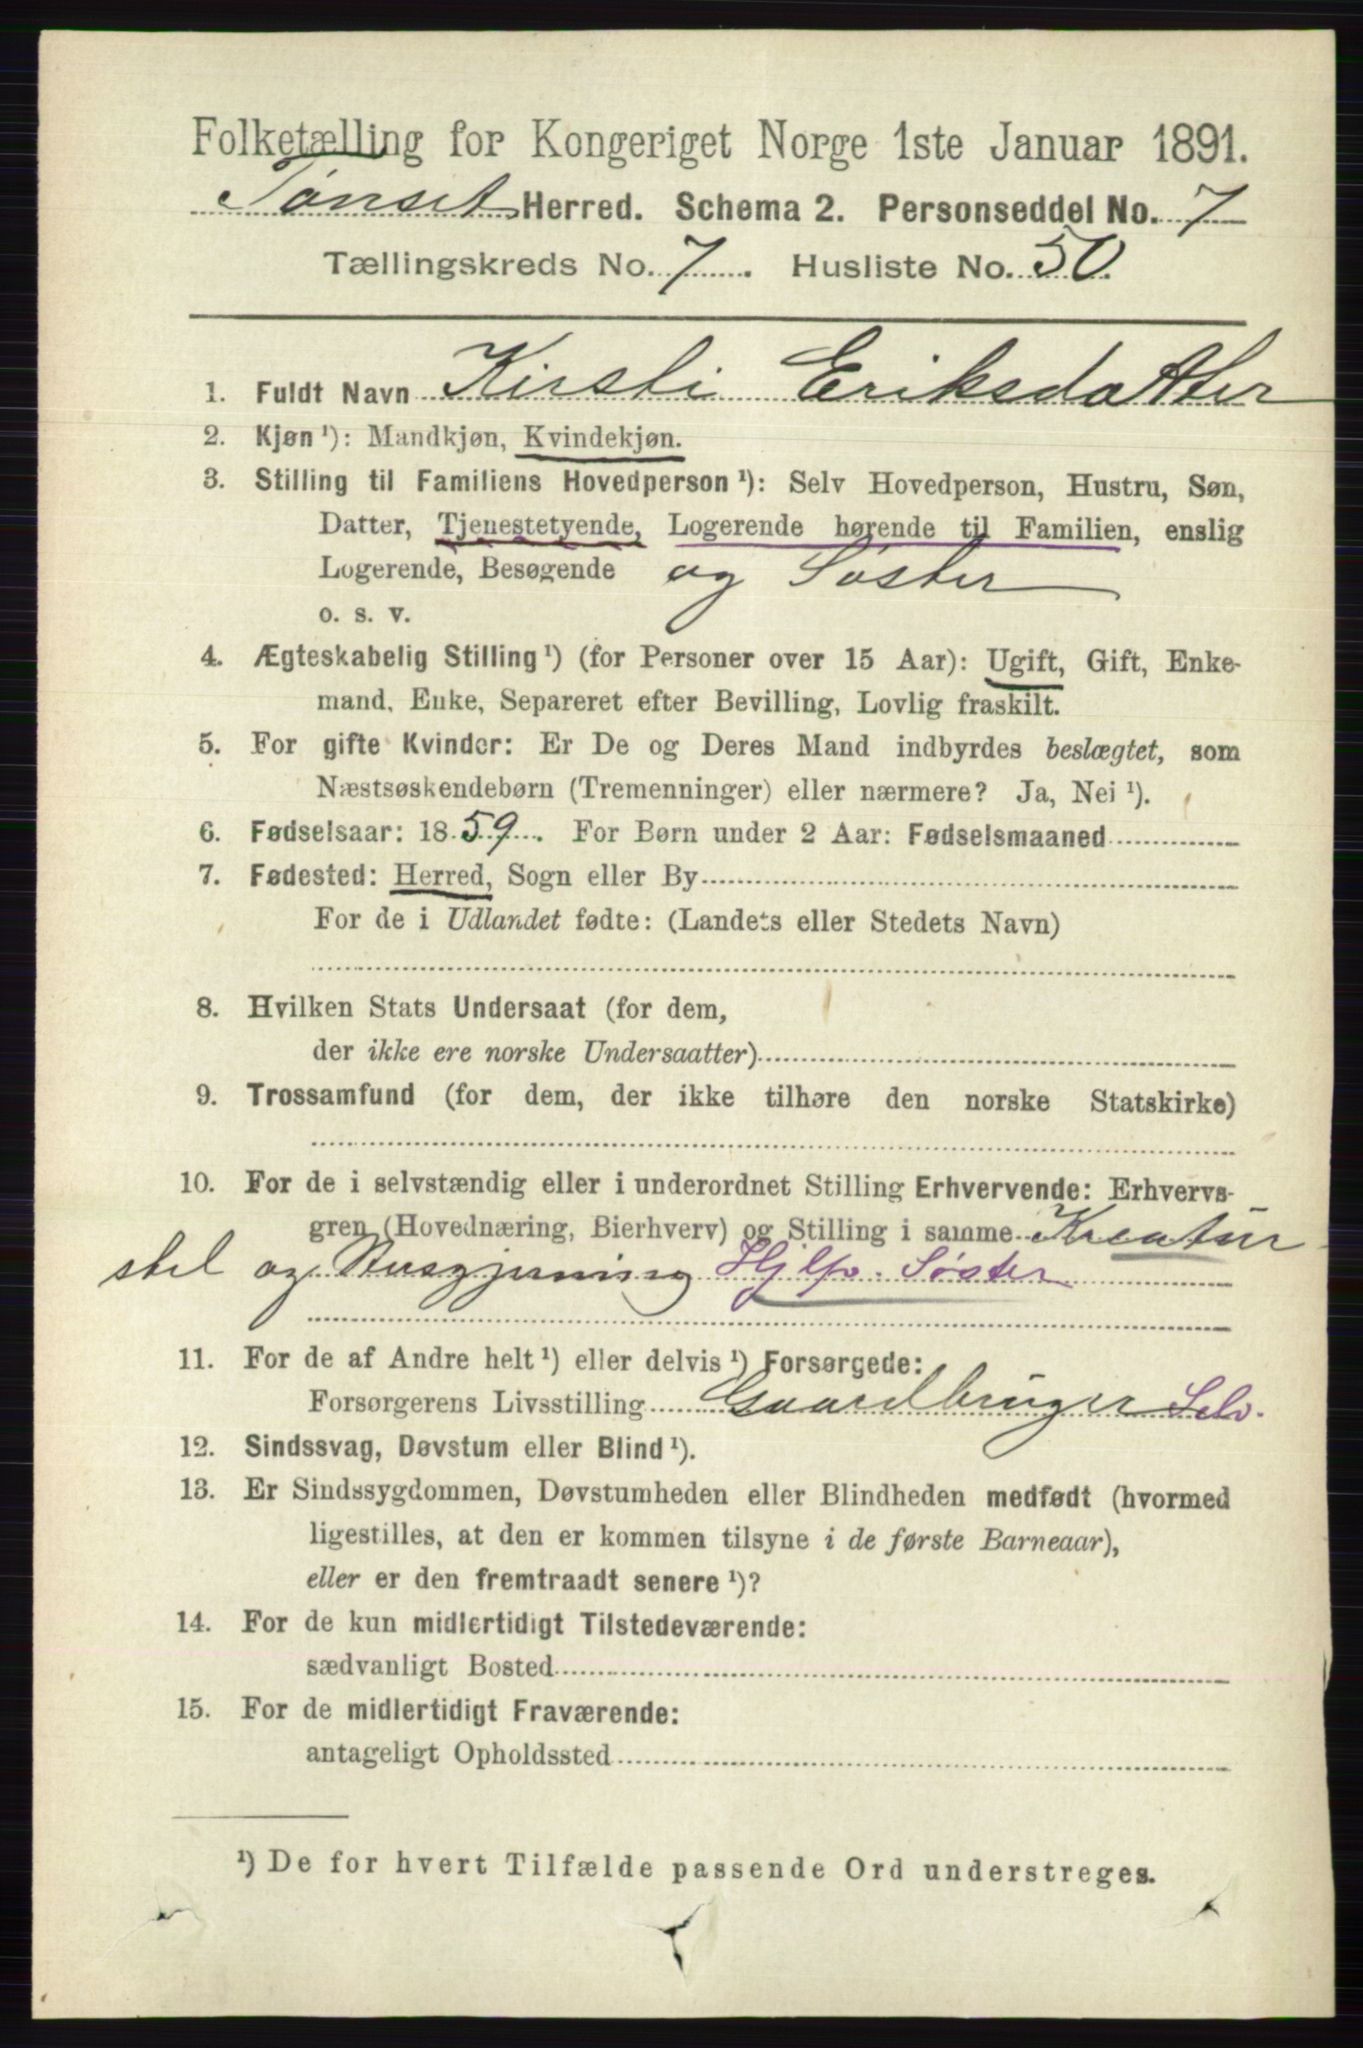 Folketælling for Kongeriget Norge 1ste Januar 1891.
Tønset Herred. Schema 2. Personseddel No. 7
Tællingskreds No. 7. Husliste No. 50.
1. Fuldt Navn Kirsti Eriksdatter
2. Kjøn ¹): Mandkjøn, Kvindekjøn.
3. Stilling til Familiens Hovedperson ¹): Selv Hovedperson, Hustru, Søn,
Datter, Tjenestetyende, Logerende hørende til Familien, enslig
Logerende, Besøgende og Søster
o. s. v.
4. Ægteskabelig Stilling ¹) (for Personer over 15 Aar): Ugift, Gift, Enke-
mand, Enke, Separeret efter Bevilling, Lovlig fraskilt.
5. For gifte Kvinder: Er De og Deres Mand indbyrdes beslægtet, som
Næstsøskendebørn (Tremenninger) eller nærmere? Ja, Nei ¹).
6. Fødselsaar: 1859. For Børn under 2 Aar: Fødselsmaaned
7. Fødested: Herred, Sogn eller By
For de i Udlandet fødte: (Landets eller Stedets Navn)
8. Hvilken Stats Undersaat (for dem,
der ikke ere norske Undersaatter)
9. Trossamfund (for dem, der ikke tilhøre den norske Statskirke)
10. For de i selvstændig eller i underordnet Stilling Erhvervende: Erhvervs-
gren (Hovednæring, Bierhverv) og Stilling i samme Kreatur
stel og Husgjerning Hjlp. Søster
11. For de af Andre helt ¹) eller delvis ¹) Forsørgede:
Forsørgerens Livsstilling Gaardbruger Selv.
12. Sindssvag, Døvstum eller Blind ¹).
13. Er Sindssygdommen, Døvstumheden eller Blindheden medfødt (hvormed
ligestilles, at den er kommen tilsyne i de første Barneaar),
eller er den fremtraadt senere ¹)?
14. For de kun midlertidigt Tilstedeværende:
sædvanligt Bosted
15. For de midlertidigt Fraværende:
antageligt Opholdssted
¹) De for hvert Tilfælde passende Ord understreges.